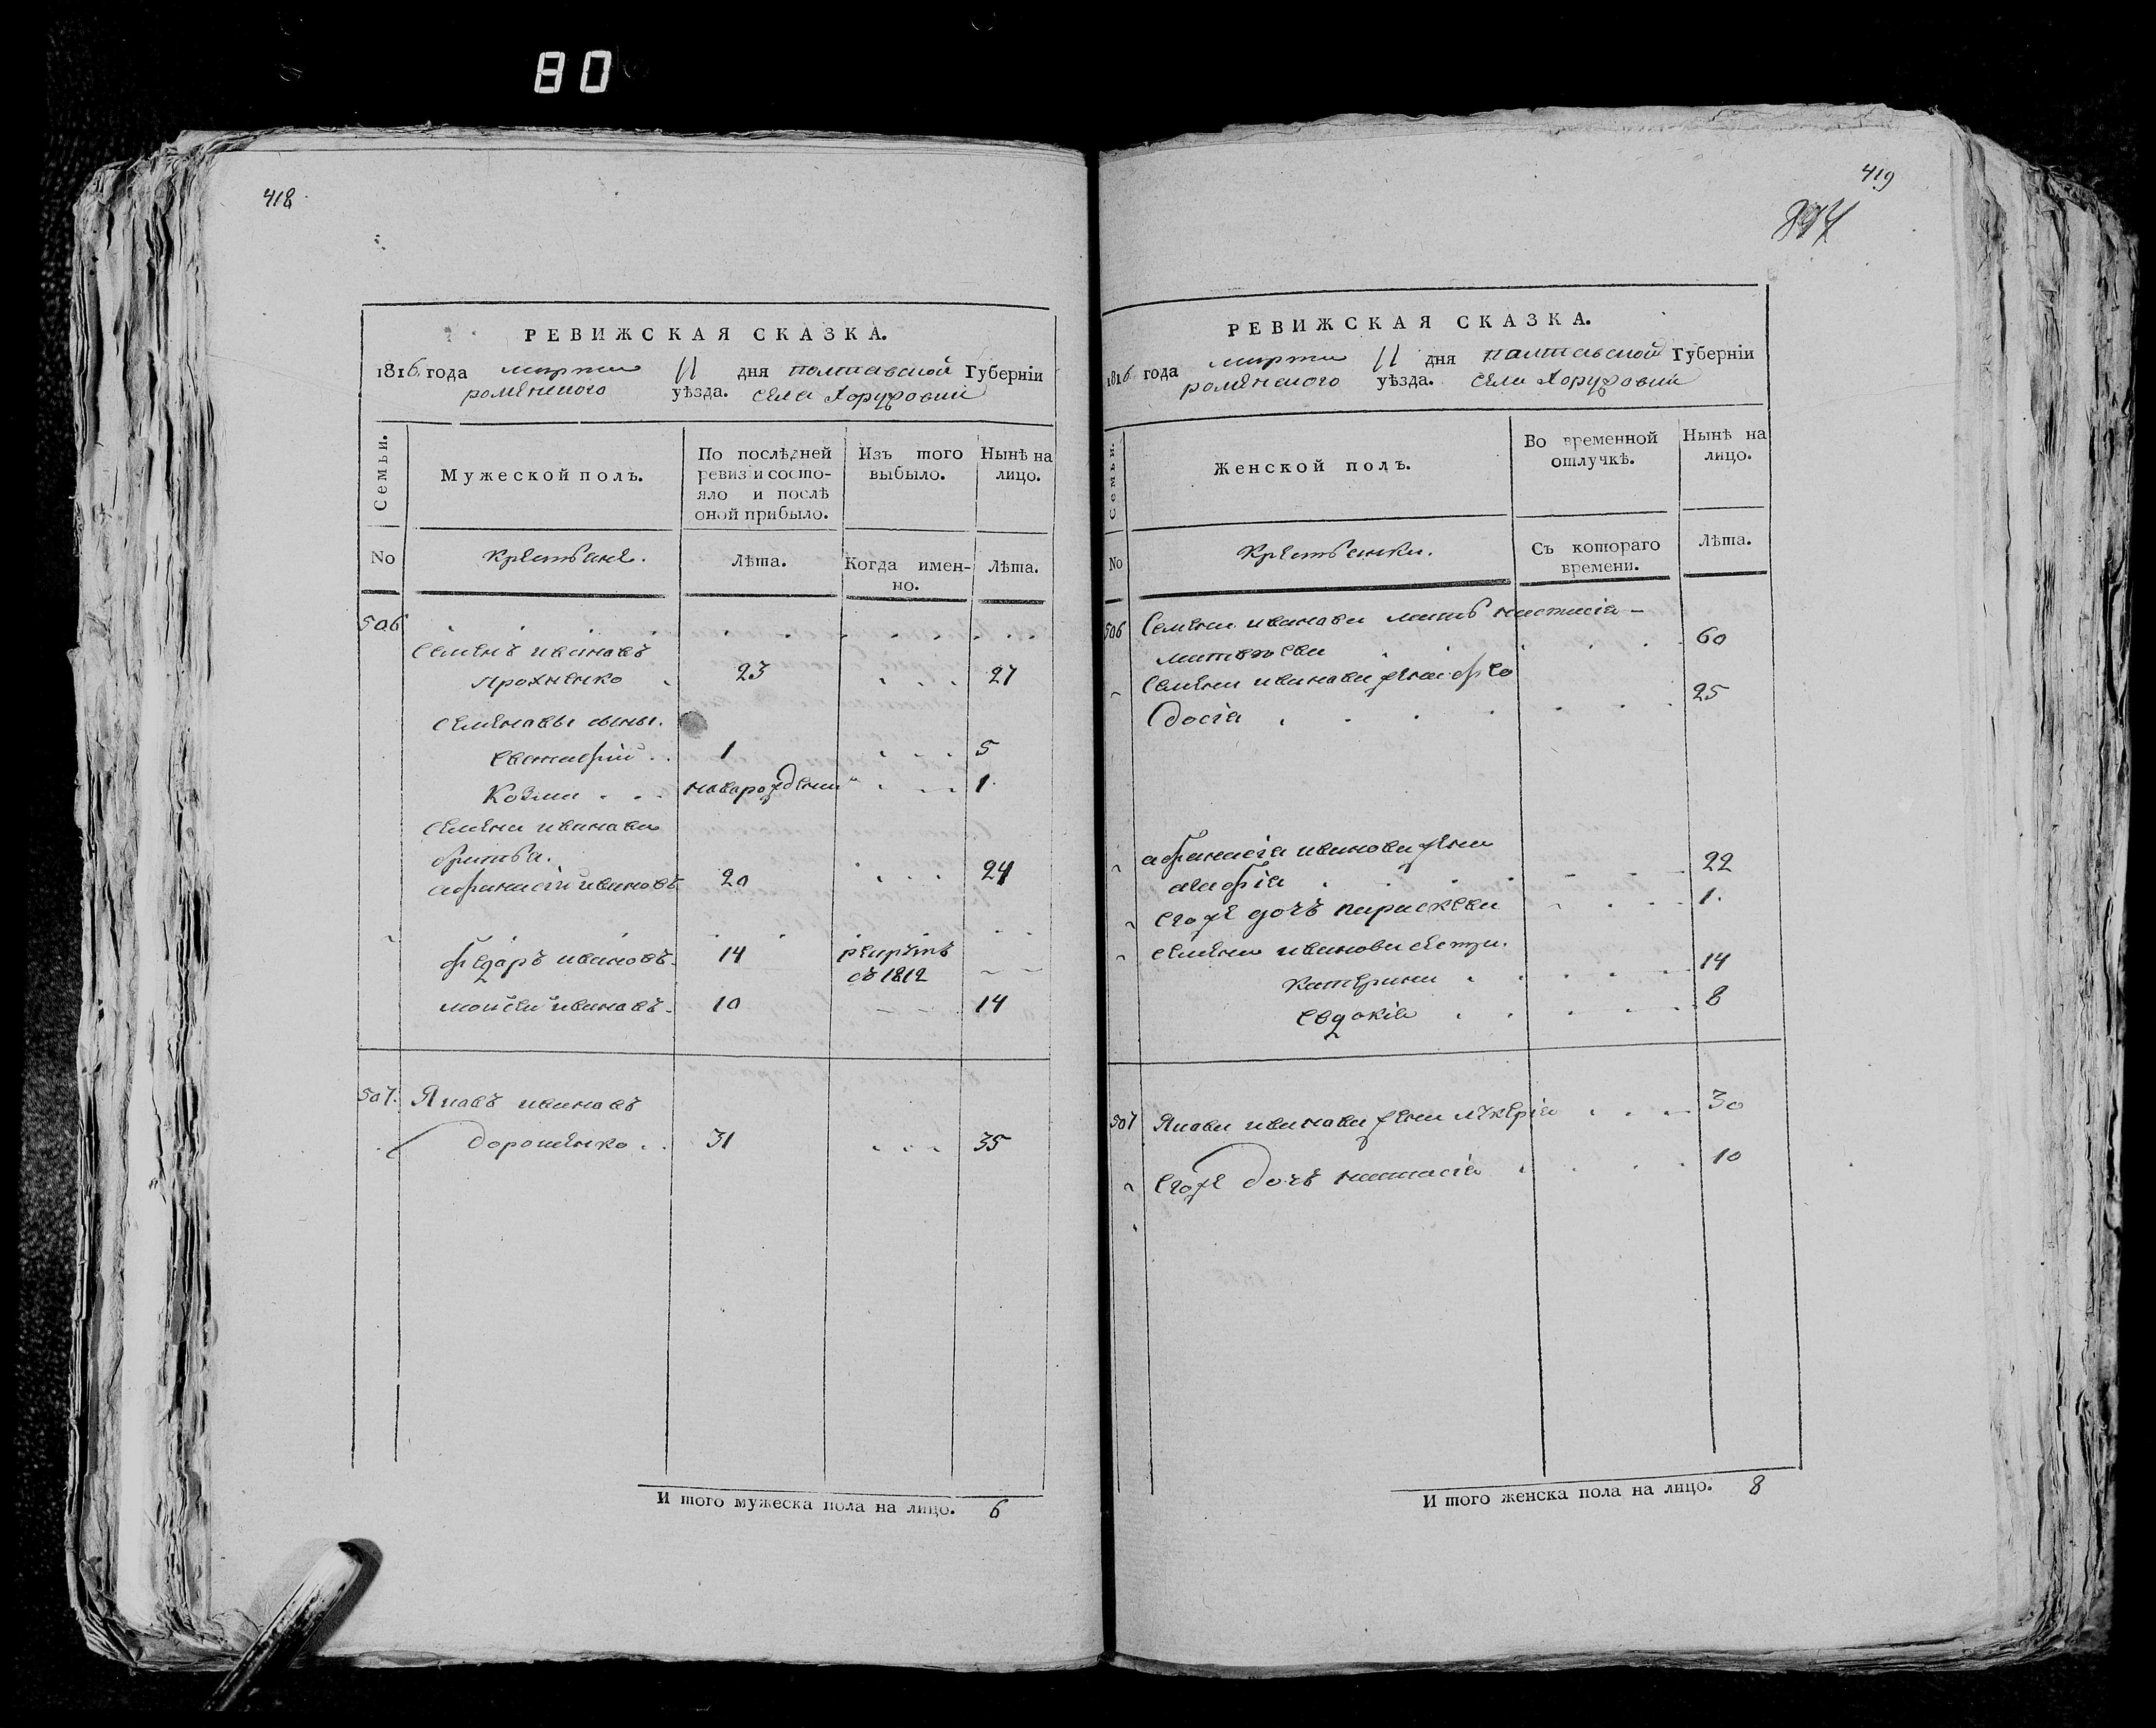 80
418
РЕВИЖСКАЯ СКАЗКА.
1816 года марта 11 дня полтавской Губерніи
роменского уѣзда. села Хоруховки
Семьи.
Мужеской полъ.
По послѣдней
ревизіи состо-
яло и послѣ
оной прибыло.
Изъ того
выбыло.
Нынѣ на
лицо.
No
Крестьяне.
Лѣта.
Когда имен-
но.
Лѣта.
506
Семенъ ивановъ
23 27
Семеновы сыны.
Евстафій 1 5
Козма наварожденъ 1
Семена иванова
братья.
афанасій ивановъ 20 24
федаръ ивановъ 14 рекрутъ
въ 1812
мойсей ивановъ 10 14
507. Яковъ ивановъ
дорошенко 31 35
И того мужеска пола на лицо. 6
419
РЕВИЖСКАЯ СКАЗКА.
1816 года марта 11 дня палтавской Губерніи
роменского уѣзда. села Хоруховки
Семьи.
Женской полъ.
Во временной
отлучкѣ.
Нынѣ на
лицо.
No
Крестьянки.
Съ котораго
времени.
Лѣта.
506 Семена иванова мать настасіа
матвѣева 60
Семена иванова жена фео
досіа 25
афанасіа иванова жена
агафіа 22
егоже дочъ параскева 1.
Семена иванова сестри.
катерина 14
евдокіа 8
507 Якова иванова жена лукеріа 30
егоже дочъ настасіа 10
И того женска пола на лицо. 8